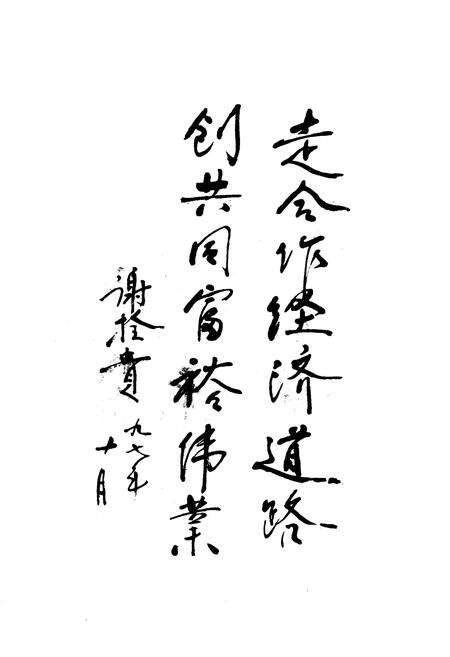 走合作经济道路
创共同富裕伟業
谢拴贵
九七年
十月